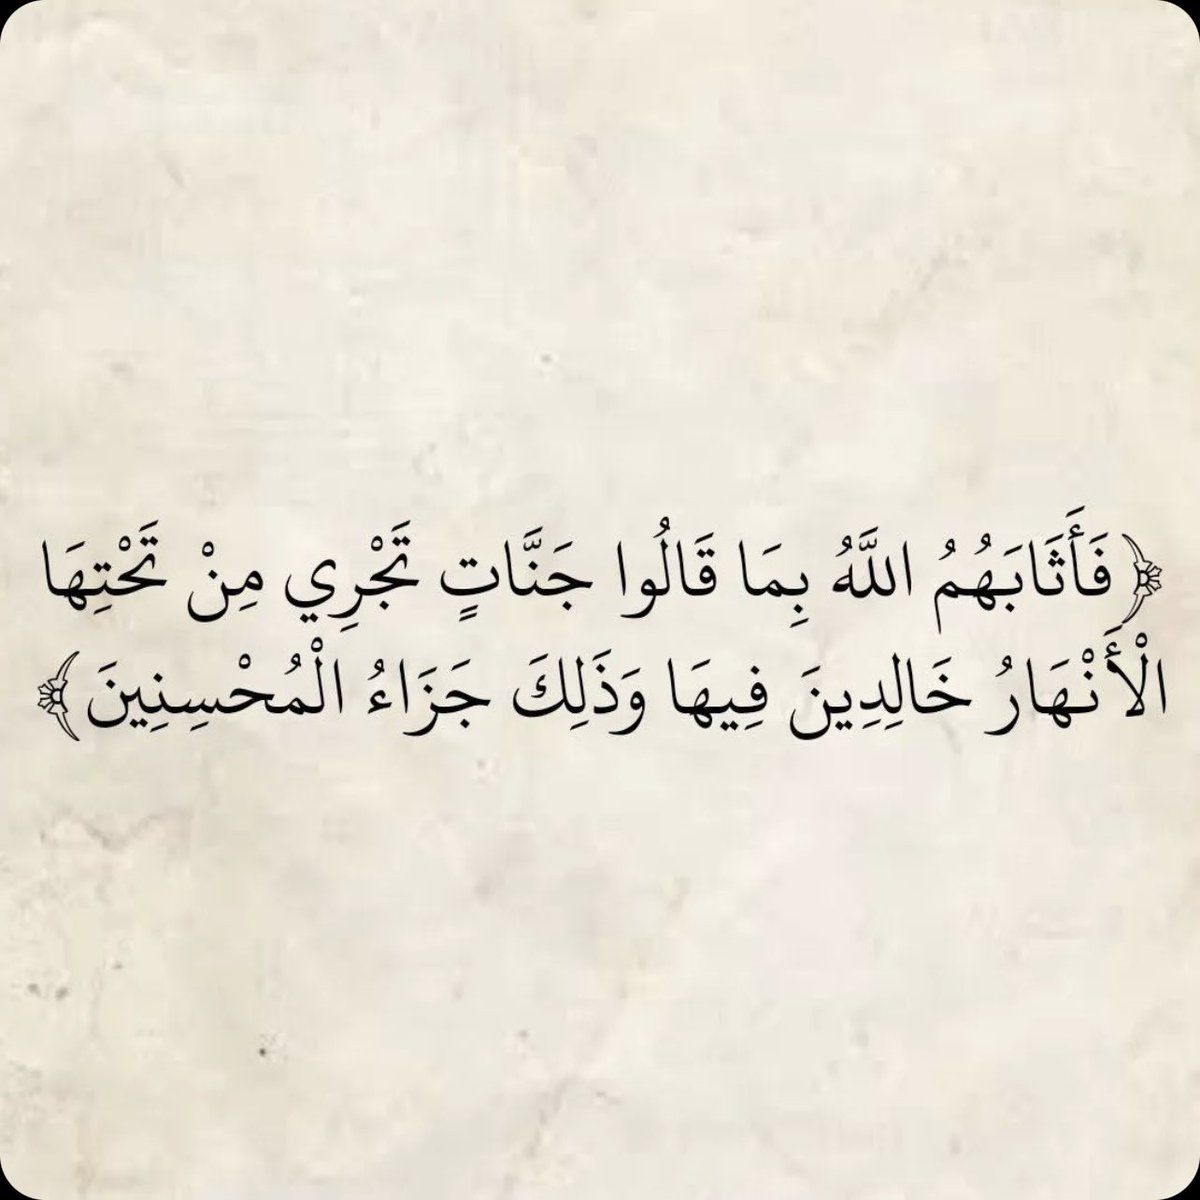 ﴿فَأَثَابَهُمُ اللَّهُ بِمَا قَالُوا جَنَّاتٍ تَجْرِي مِنْ تَحْتِهَا
الْأَنْهَارُ خَالِدِينَ فِيهَا وَذَلِكَ جَزَاءُ الْمُحْسِنِينَ﴾